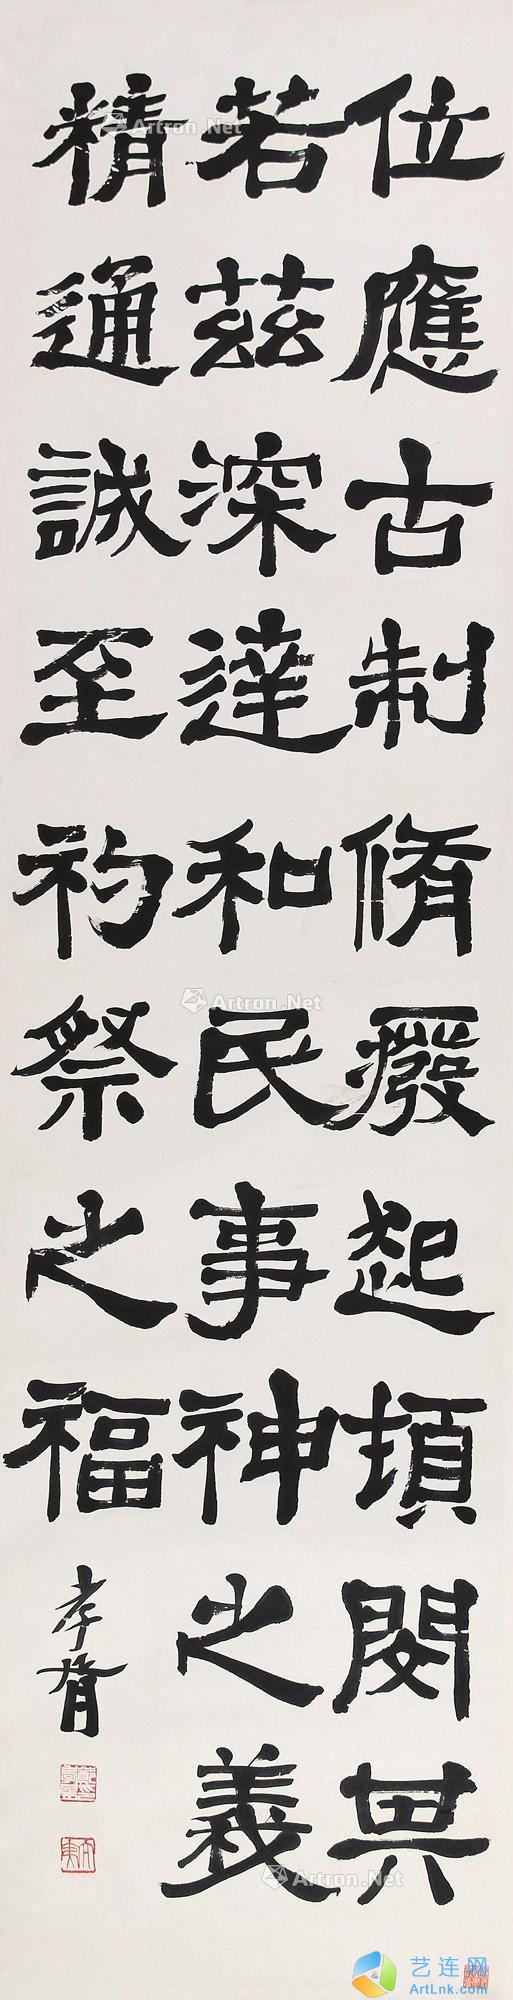 位應古制脩癈起頃閔其
若茲深達和民事神之義
精通誠至礿祭之福
孝胥
Artron.Net
Artron.Net
Artron.Net
艺连网
ArtLnk.com